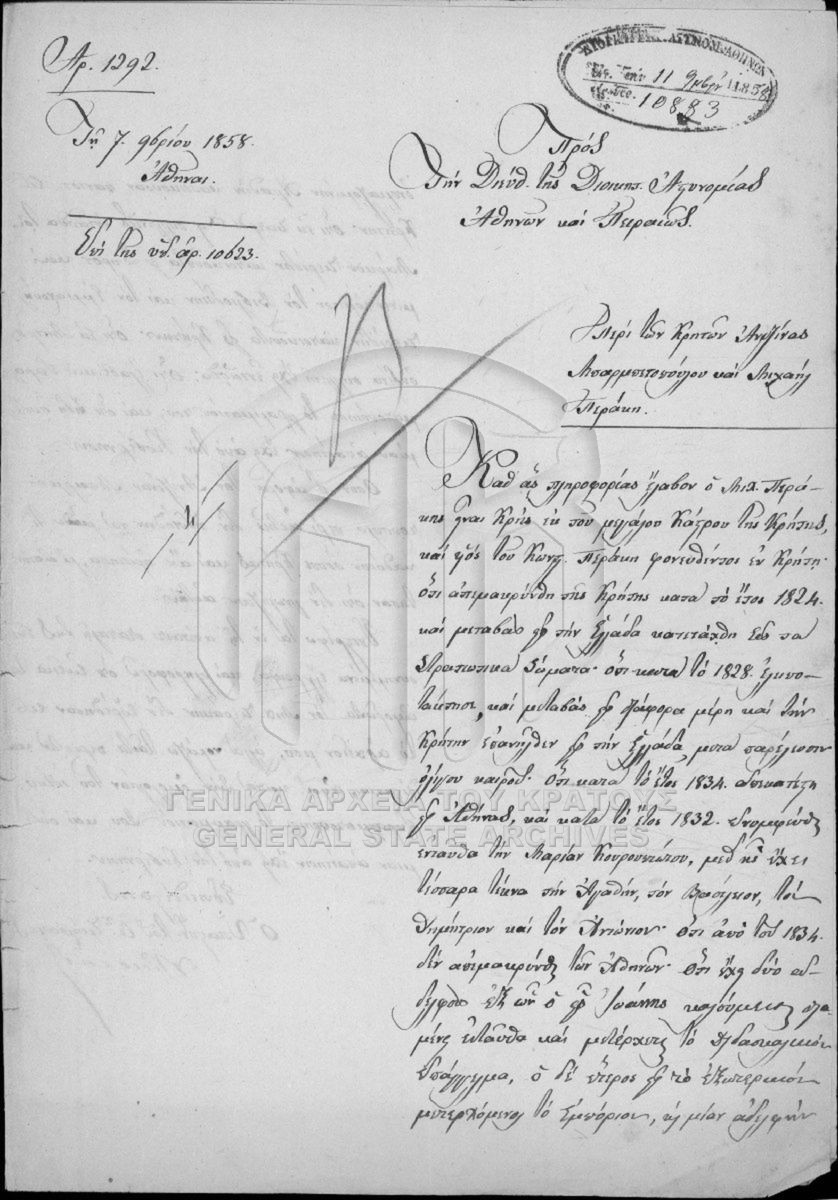 Αρ. 1292.
Τῇ 7. 9βρίου 1858.
Ἀθῆναι.
Ἐπὶ τῆς ὑπ. ἀρ. 10623.
ΑΘΗΝΩΝ
11 9βρίου 1858
10883
Πρὸς
Τὴν Διεύθ. τῆς Διοικητ. Ἀστυνομίας
Ἀθηνῶν καὶ Πειραιῶς.
Περὶ τῶν Κρητῶν
καὶ Μιχαὴλ
Περάκη.
Καθ' ἃς πληροφορίας ἔλαβον ὁ Μιχ. Περά-
κης εἶναι Κρὴς ἐκ τοῦ μεγάλου Κάστρου τῆς Κρήτης,
καὶ υἱὸς τοῦ Κωνστ. Περάκη φονευθέντος ἐν Κρήτῃ·
ὅτι ἀπεμακρύνθη τῆς Κρήτης κατὰ τὸ ἔτος 1824.
καὶ μεταβὰς εἰς τὴν Ἑλλάδα κατετάχθη εἰς τὰ
Στρατιωτικὰ Σώματα· ὅτι κατὰ τὸ 1828.
καὶ μεταβὰς εἰς διάφορα μέρη καὶ τὴν
Κρήτην ἐπανῆλθεν εἰς τὴν Ἑλλάδα, μετὰ παρέλευσιν
ὀλίγου καιροῦ· Ὅτι κατὰ τὸ ἔτος 1834. ἀποκατέστη
εἰς Ἀθήνας, καὶ κατὰ τὸ ἔτος 1832. ἐνυμφεύθη
ἐνταῦθα τὴν Μαρίαν μεθ' ἧς ἔχει
τέσσαρα τέκνα τὴν Ἀγαθὴν, τὸν Βασίλειον, τὸν
Δημήτριον καὶ τὸν Ἀντώνιον· Ὅτι ἀπὸ τοῦ 1834.
δὲν ἀπεμακρύνθη τῶν Ἀθηνῶν· Ὅτι ἔχει δύο ἀδ-
ελφοὺς ἐξ ὧν ὁ εἷς Ἰωάννης καλούμενος
ἐνταῦθα καὶ μετέρχεται τὸ διδασκαλικὸν
ἐπάγγελμα, ὁ δὲ ἕτερος εἰς τὸ ἐξωτερικὸν
μετερχόμενος τὸ ἐμπόριον, μίαν ἀδελφὴν
ΓΕΝΙΚΑ ΑΡΧΕΙΑ ΤΟΥ ΚΡΑΤΟΥΣ
GENERAL STATE ARCHIVES